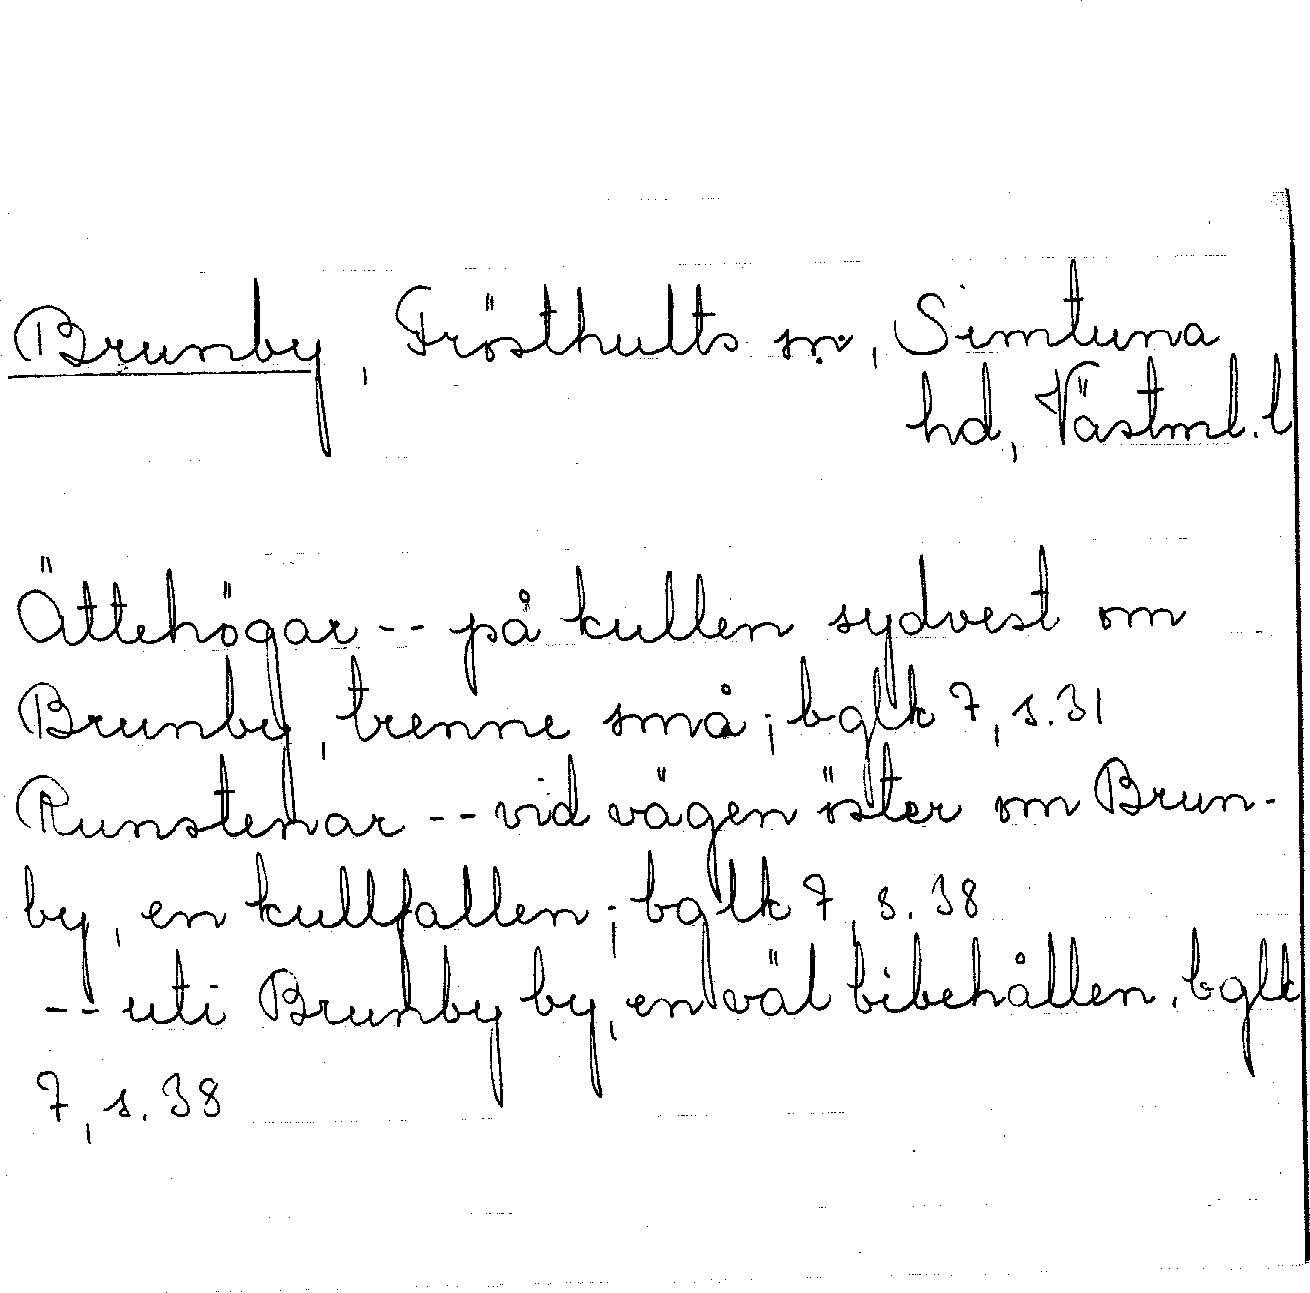 Brunby, Frösthults sn, Simtuna
hd, Västml. l
Ättehögar -- på kullen sydvest om
Brunby, trenne små; bglk 7, s. 31
Runstenar -- vid vägen öster om Brun-
by, en kullfallen; bglk 7, s. 38
-- uti Brunby by, en väl bibehållen, bglk
7, s. 38